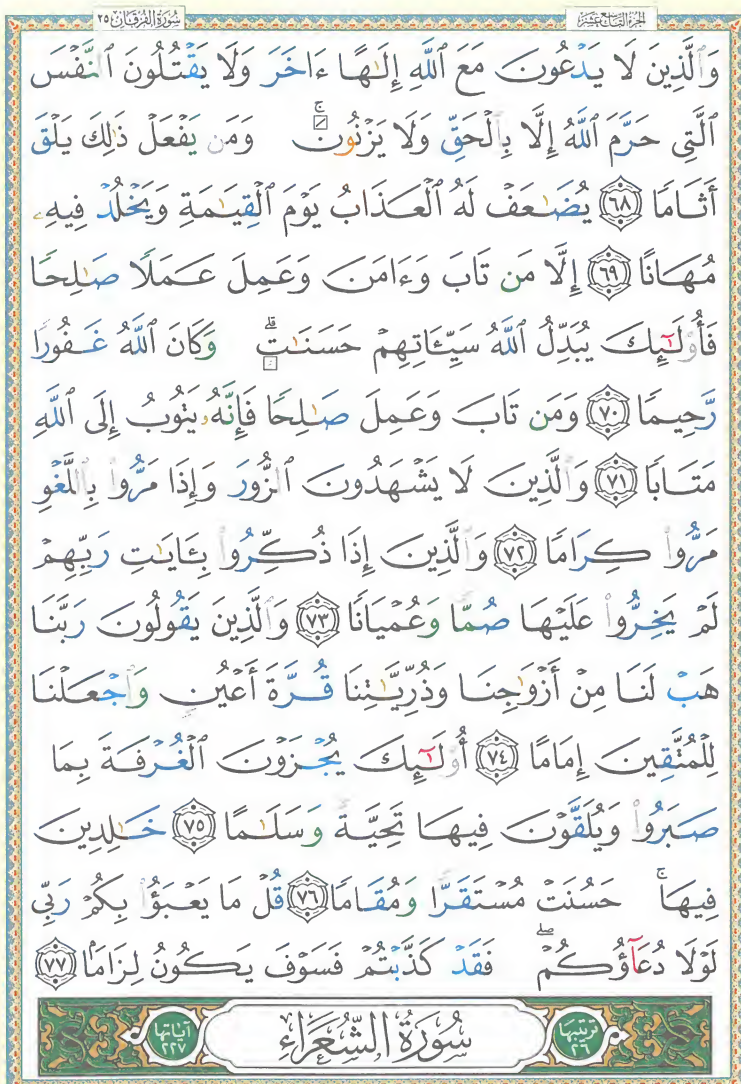 سُورَةُ الْفُرْقَانِ ٢٥
الجُزْءُ التَّاسِعَ عَشَرَ
وَٱلَّذِينَ لَا يَدْعُونَ مَعَ ٱللَّهِ إِلَٰهًا ءَاخَرَ وَلَا يَقْتُلُونَ ٱلنَّفْسَ
ٱلَّتِى حَرَّمَ ٱللَّهُ إِلَّا بِٱلْحَقِّ وَلَا يَزْنُونَ ۚ وَمَن يَفْعَلْ ذَٰلِكَ يَلْقَ
أَثَامًا ٦٨ يُضَٰعَفْ لَهُ ٱلْعَذَابُ يَوْمَ ٱلْقِيَٰمَةِ وَيَخْلُدْ فِيهِۦ
مُهَانًا ٦٩ إِلَّا مَن تَابَ وَءَامَنَ وَعَمِلَ عَمَلًا صَٰلِحًا
فَأُو۟لَٰٓئِكَ يُبَدِّلُ ٱللَّهُ سَيِّـَٔاتِهِمْ حَسَنَٰتٍ ۗ وَكَانَ ٱللَّهُ غَفُورًا
رَّحِيمًا ٧٠ وَمَن تَابَ وَعَمِلَ صَٰلِحًا فَإِنَّهُۥ يَتُوبُ إِلَى ٱللَّهِ
مَتَابًا ٧١ وَٱلَّذِينَ لَا يَشْهَدُونَ ٱلزُّورَ وَإِذَا مَرُّوا۟ بِٱللَّغْوِ
مَرُّوا۟ كِرَامًا ٧٢ وَٱلَّذِينَ إِذَا ذُكِّرُوا۟ بِـَٔايَٰتِ رَبِّهِمْ
لَمْ يَخِرُّوا۟ عَلَيْهَا صُمًّا وَعُمْيَانًا ٧٣ وَٱلَّذِينَ يَقُولُونَ رَبَّنَا
هَبْ لَنَا مِنْ أَزْوَٰجِنَا وَذُرِّيَّٰتِنَا قُرَّةَ أَعْيُنٍ وَٱجْعَلْنَا
لِلْمُتَّقِينَ إِمَامًا ٧٤ أُو۟لَٰٓئِكَ يُجْزَوْنَ ٱلْغُرْفَةَ بِمَا
صَبَرُوا۟ وَيُلَقَّوْنَ فِيهَا تَحِيَّةً وَسَلَٰمًا ٧٥ خَٰلِدِينَ
فِيهَا ۚ حَسُنَتْ مُسْتَقَرًّا وَمُقَامًا ٧٦ قُلْ مَا يَعْبَؤُا۟ بِكُمْ رَبِّى
لَوْلَا دُعَآؤُكُمْ ۖ فَقَدْ كَذَّبْتُمْ فَسَوْفَ يَكُونُ لِزَامًا ٧٧
ترتيبها ٢٦
سُورَةُ الشُّعَرَاءِ
آياتها ٢٢٧